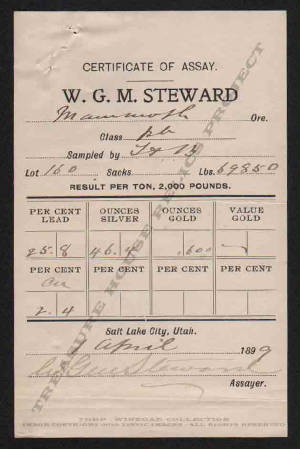 CERTIFICATE OF ASSAY.
W. G. M. STEWARD
Mammoth Ore.
Class Pb
Sampled by
Lot 160 Sacks Lbs. 69850
RESULT PER TON, 2,000 POUNDS.
PER CENT LEAD OUNCES SILVER OUNCES GOLD VALUE GOLD
25.8 46.4 .600
PER CENT PER CENT PER CENT PER CENT
Cu
2.4
Salt Lake City, Utah.
April 1899
W. G. M. Steward
Assayer.
TREASURE HOUSE RELICS PROJECT
THRP - WINEGAR COLLECTION